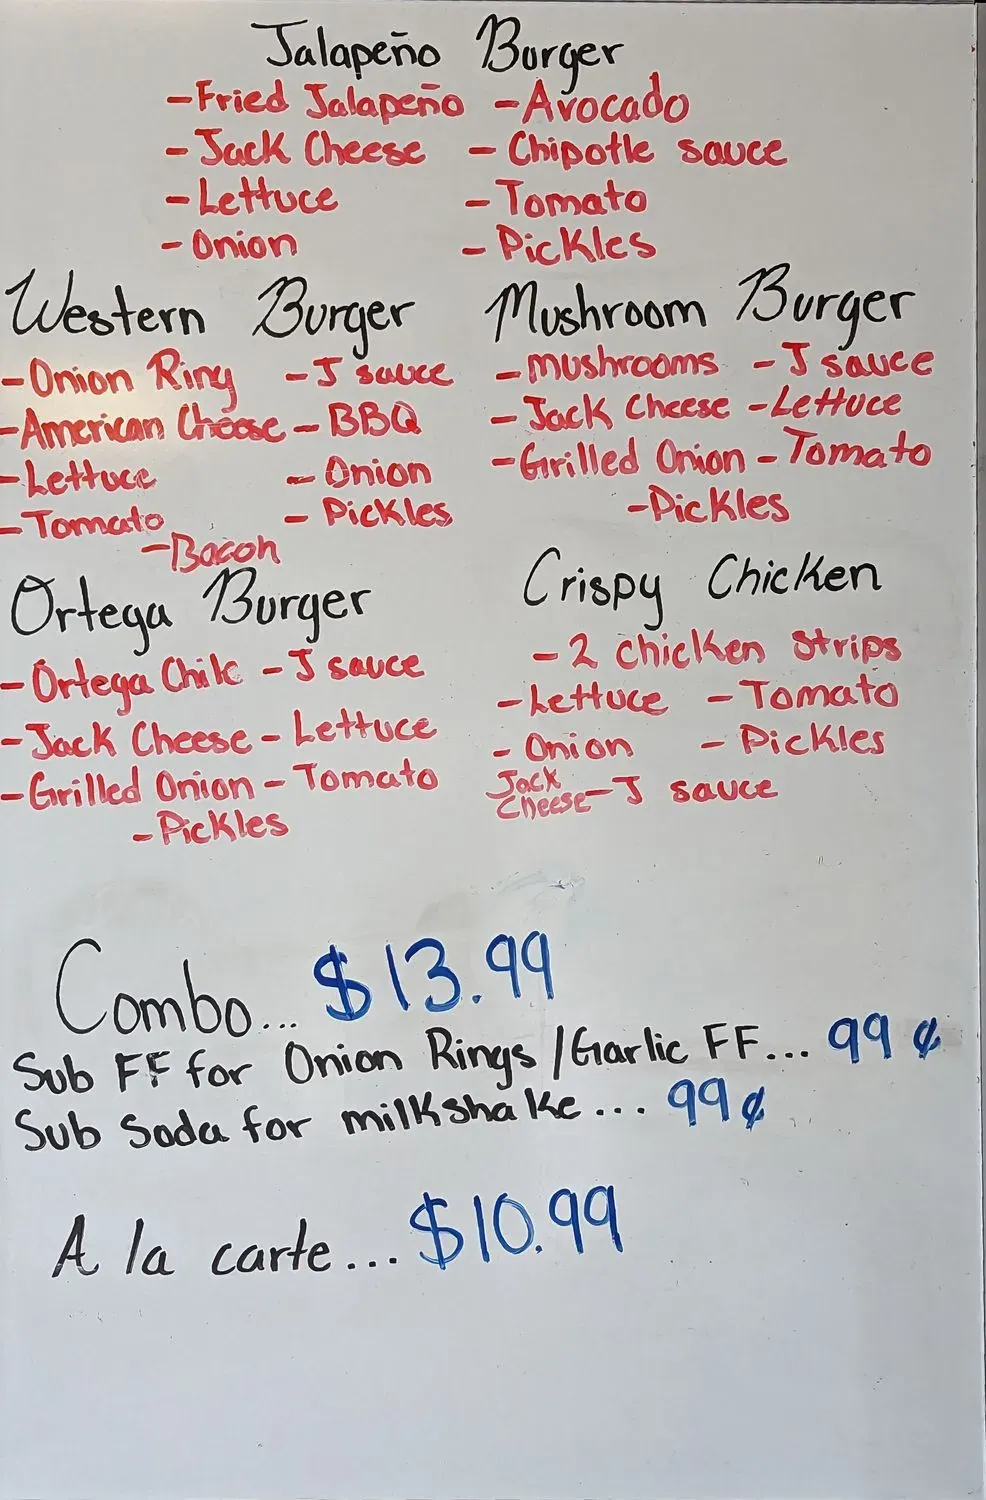 Jalapeño Burger
-Fried Jalapeño -Avocado
-Jack Cheese -Chipotle sauce
-Lettuce -Tomato
-Onion -Pickles
Western Burger
-Onion Ring -J sauce
-American Cheese -BBQ
-Lettuce -Onion
-Tomato -Pickles
-Bacon
Mushroom Burger
-mushrooms -J sauce
-Jack Cheese -Lettuce
-Grilled Onion -Tomato
-Pickles
Ortega Burger
-Ortega Chile -J sauce
-Jack Cheese -Lettuce
-Grilled Onion -Tomato
-Pickles
Crispy Chicken
-2 chicken strips
-Lettuce -Tomato
-Onion -Pickles
Jack Cheese -J sauce
Combo... $13.99
Sub FF for Onion Rings/Garlic FF... 99¢
Sub Soda for milkshake... 99¢
A la carte... $10.99